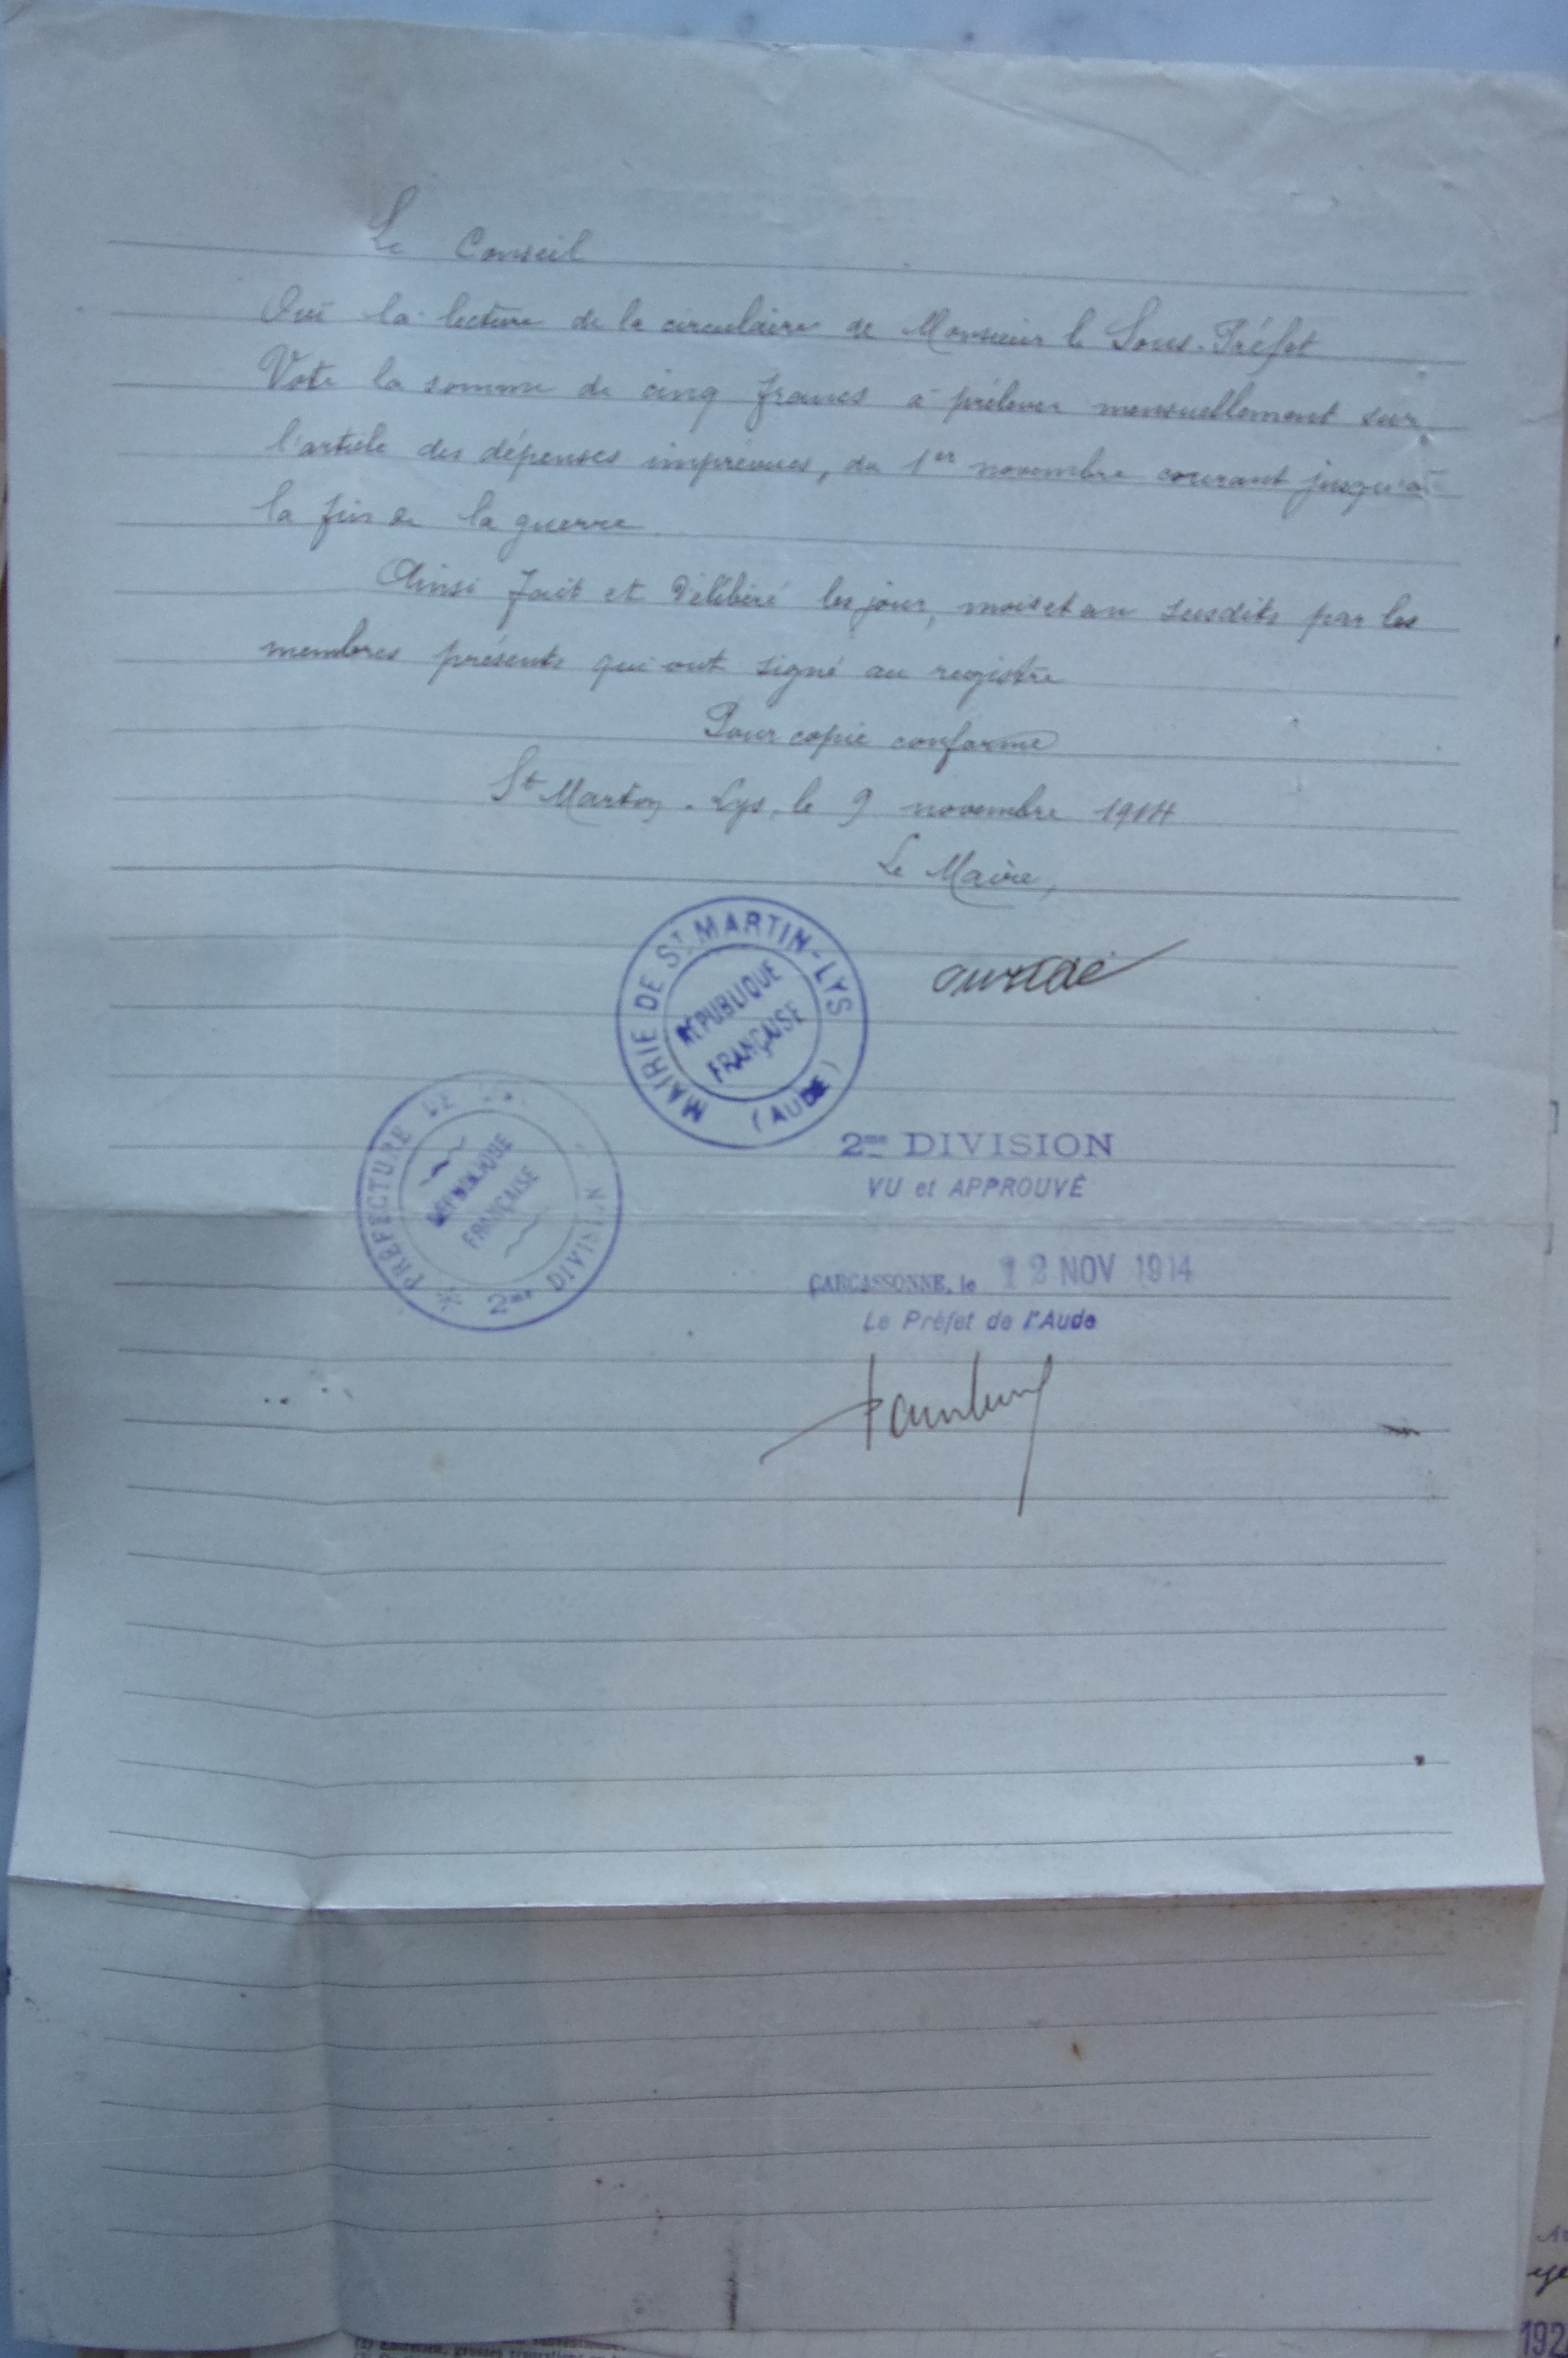 Le Conseil
Oui la lecture de la circulaire de Monsieur le Sous-Préfet
Vote la somme de cinq francs à prélever mensuellement sur
l'article des dépenses imprévues, du 1er novembre courant jusqu'à
la fin de la guerre
Ainsi fait et délibéré les jour, mois et an susdits par les
membres présents qui ont signé au registre
Pour copie conforme
St Martin-Lys, le 9 novembre 1914
Le Maire,
MAIRIE DE ST MARTIN-LYS
(AUDE)
RÉPUBLIQUE
FRANÇAISE
PRÉFECTURE DE
2me DIVISION
RÉPUBLIQUE
FRANÇAISE
2me DIVISION
VU et APPROUVÉ
CARCASSONNE, le 12 NOV 1914
Le Préfet de l'Aude
192